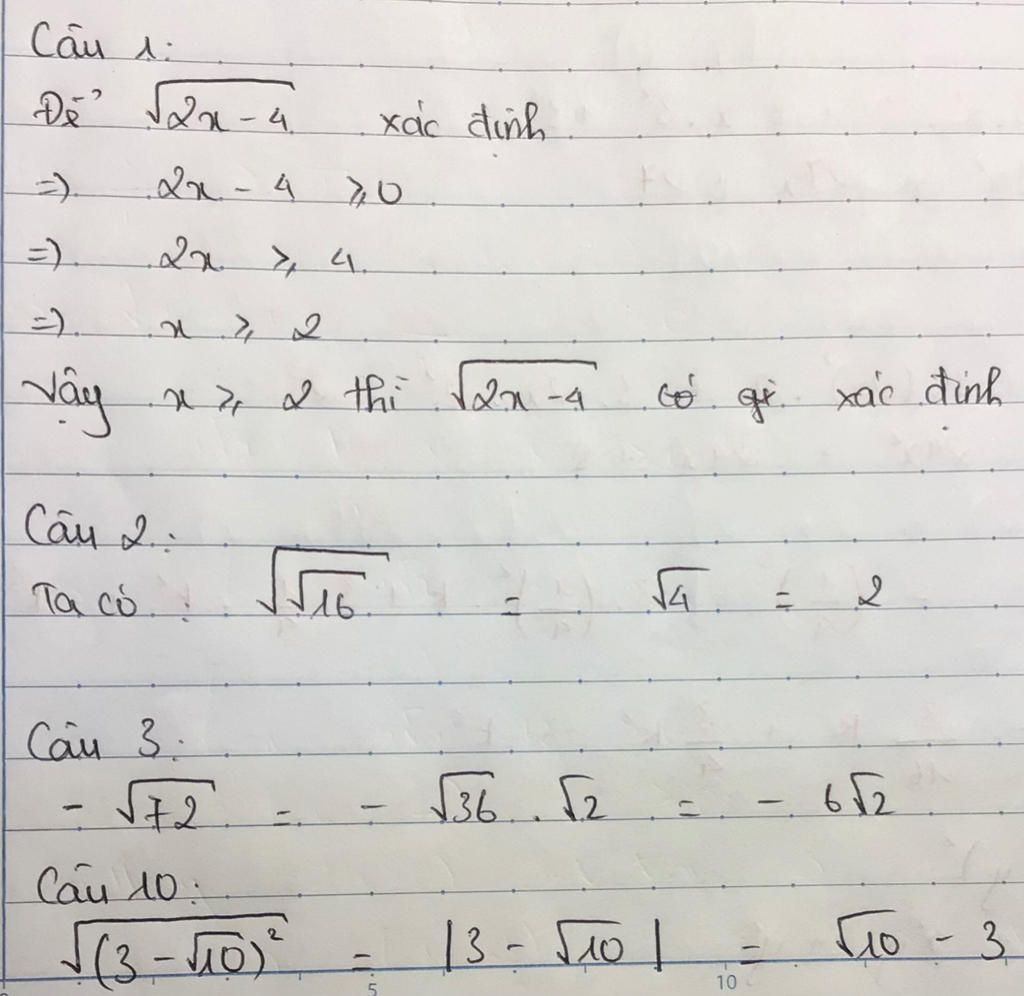 Câu 1:
Để √(2x - 4) xác định
=) 2x - 4 ⩾ 0
=) 2x ⩾ 4
=) x ⩾ 2
Vậy x ⩾ 2 thì √(2x - 4) có xác định
Câu 2:
Ta có: √(√16) = √4 = 2
Câu 3:
- √72 = - √36 . √2 = - 6√2
Câu 10:
√((3 - √10)²) = |3 - √10| = √10 - 3
5 10